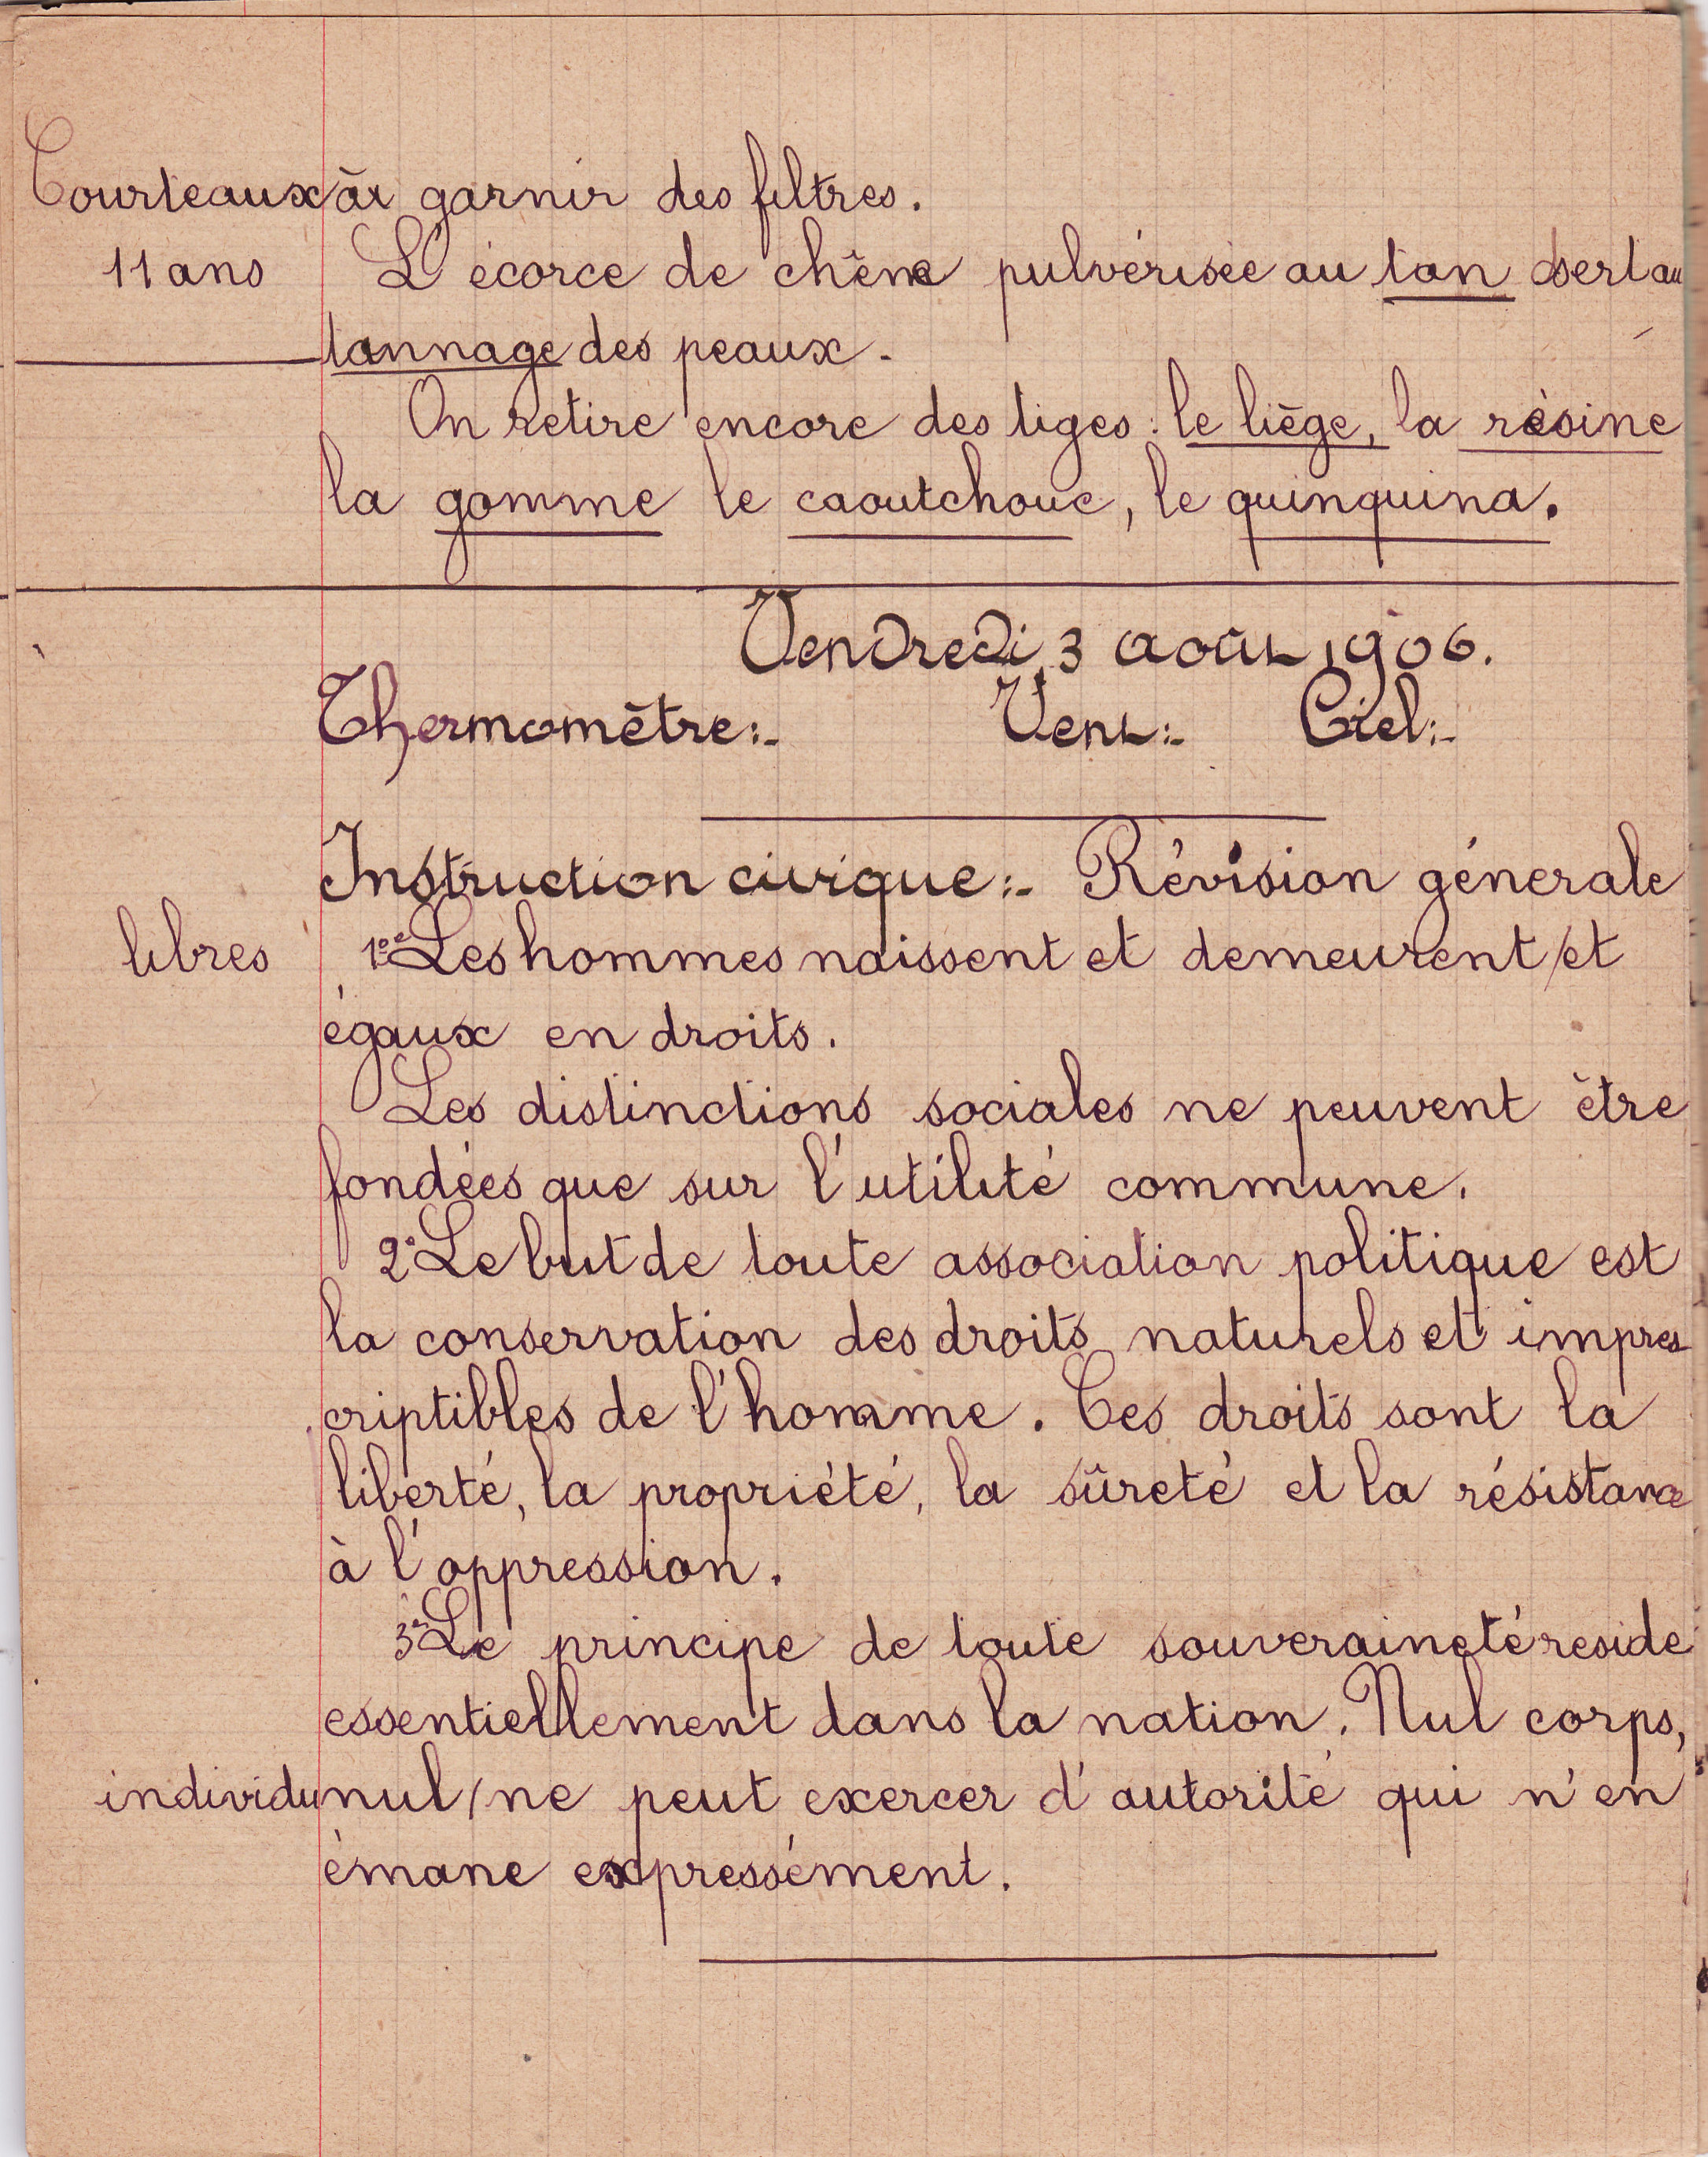 Courteaux à garnir des filtres.
11 ans L'écorce de chêne pulvérisée au tan sert au
tannage des peaux.
On retire encore des tiges : le liège, la résine
la gomme le caoutchouc, le quinquina.
Vendredi 3 août 1906.
Thermomètre:- Vent:- Ciel:-
Instruction civique:- Révision génerale
libres 1º Les hommes naissent et demeurent/et
égaux en droits.
Les distinctions sociales ne peuvent être
fondées que sur l'utilité commune.
2º Le but de toute association politique est
la conservation des droits naturels et impres
criptibles de l'homme. Ces droits sont la
liberté, la propriété, la sûreté et la résistance
à l'oppression.
3º Le principe de toute souveraineté reside
essentiellement dans la nation. Nul corps,
individu nul/ne peut exercer d'autorité qui n'en
émane expressément.